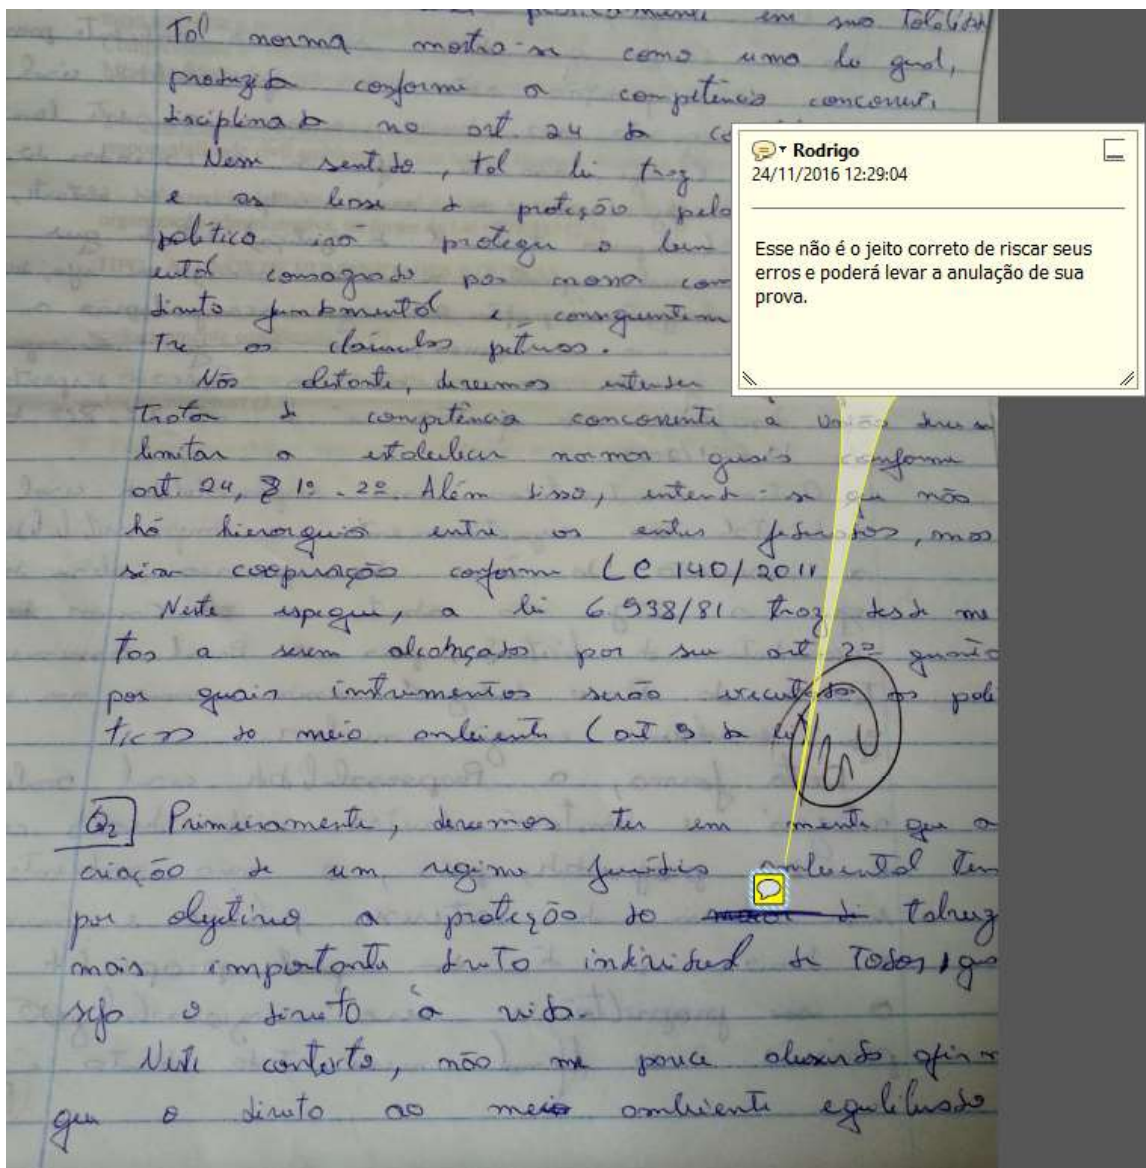 em sua
Tal norma mostra-se como uma de geral,
produzida conforme a competência concorre
disciplinada no art. 24 da co
Nesse sentido, tal lei traz
e as bases de proteção pelo
político irá proteger o bem
ental consagrado por com
direito fundamental e consequentem
Tre as cláusulas pétreas.
Não obstante, devemos entender
tratar de competência concorrente a União deve se
limitar a estabelecer normas gerais conforme
art. 24, § 1º - 2º. Além disso, entende-se que não
há hierarquia entre os entes federados, mas
sim cooperação conforme LC 140/2011
Neste, a lei 6.938/81 traz desde me
tas a serem alcançados por seu art. 2º quanto
por quais intrumentos serão executados as polí
ticas do meio ambiente (art 9 da lei)
Q2 Primeiramente, devemos ter em mente que a
criação de um regime jurídico ambiental tem
por objetivo a proteção do talvez
mais importante direto individual de Todos, que
seja o direito à vida.
Neste contexto, não me parece absurdo afirm
que o direito ao meio ambiente equilibrado
Rodrigo
24/11/2016 12:29:04
Esse não é o jeito correto de riscar seus
erros e poderá levar a anulação de sua
prova.